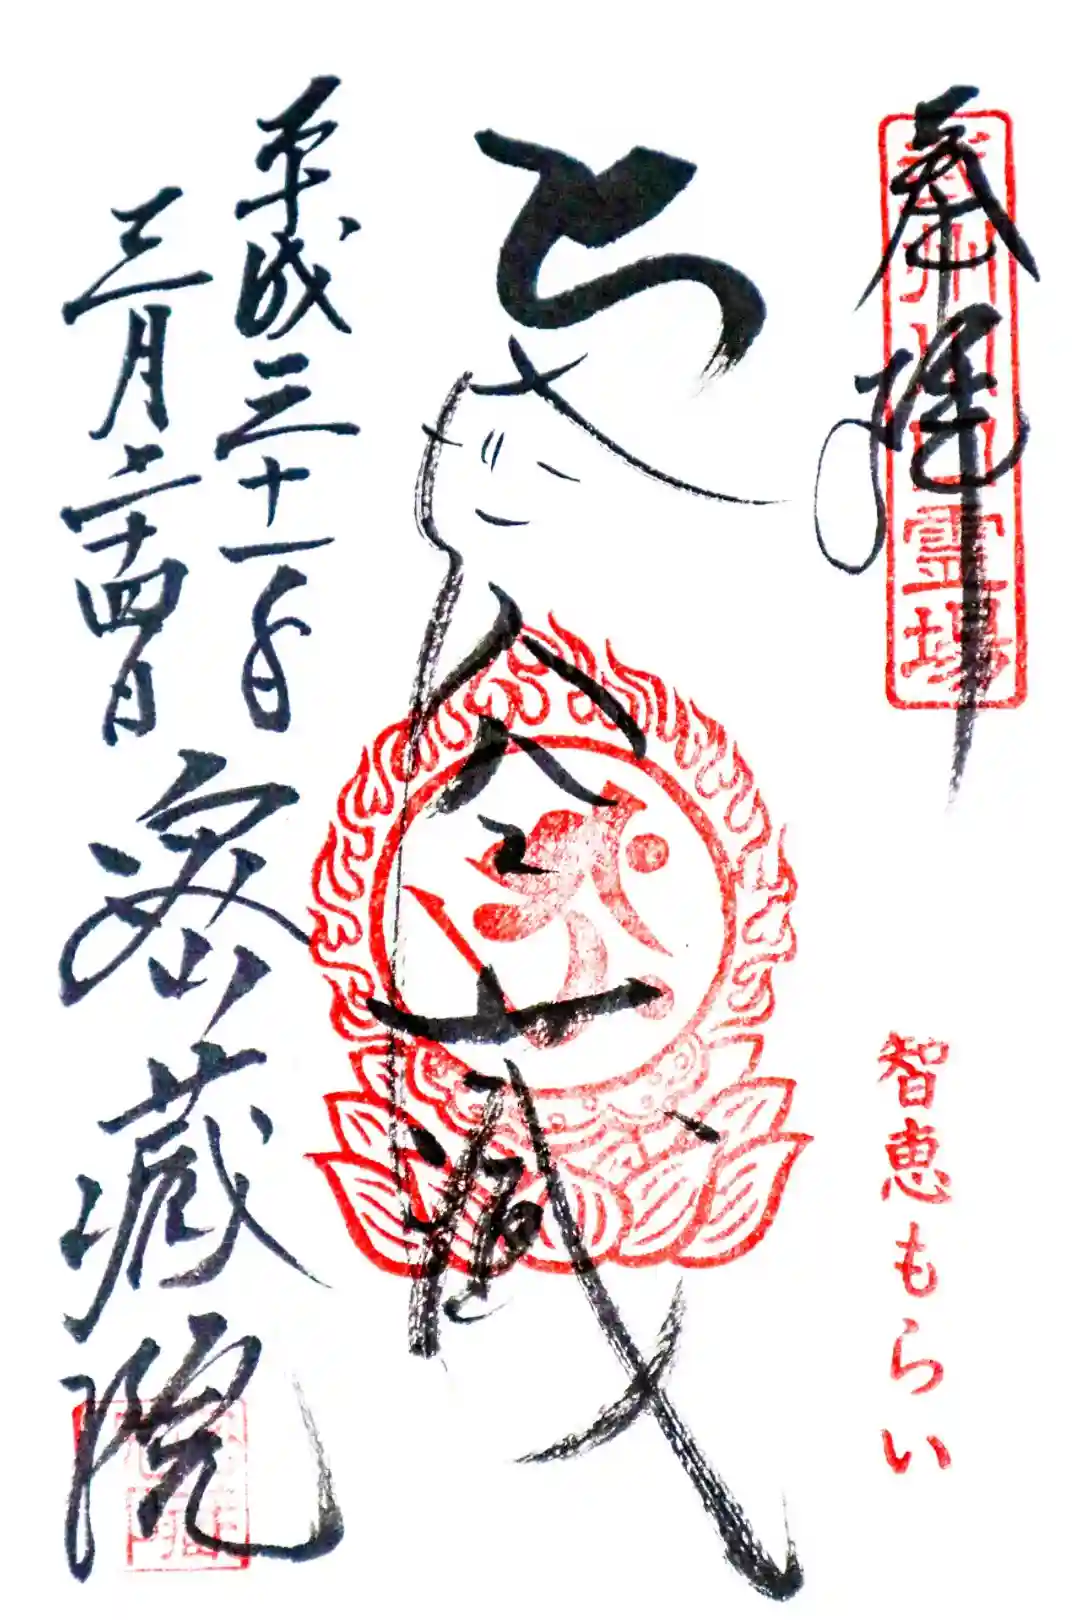 奉拝
智恵もらい
虚空蔵
平成三十一年
三月二十四日
密蔵院